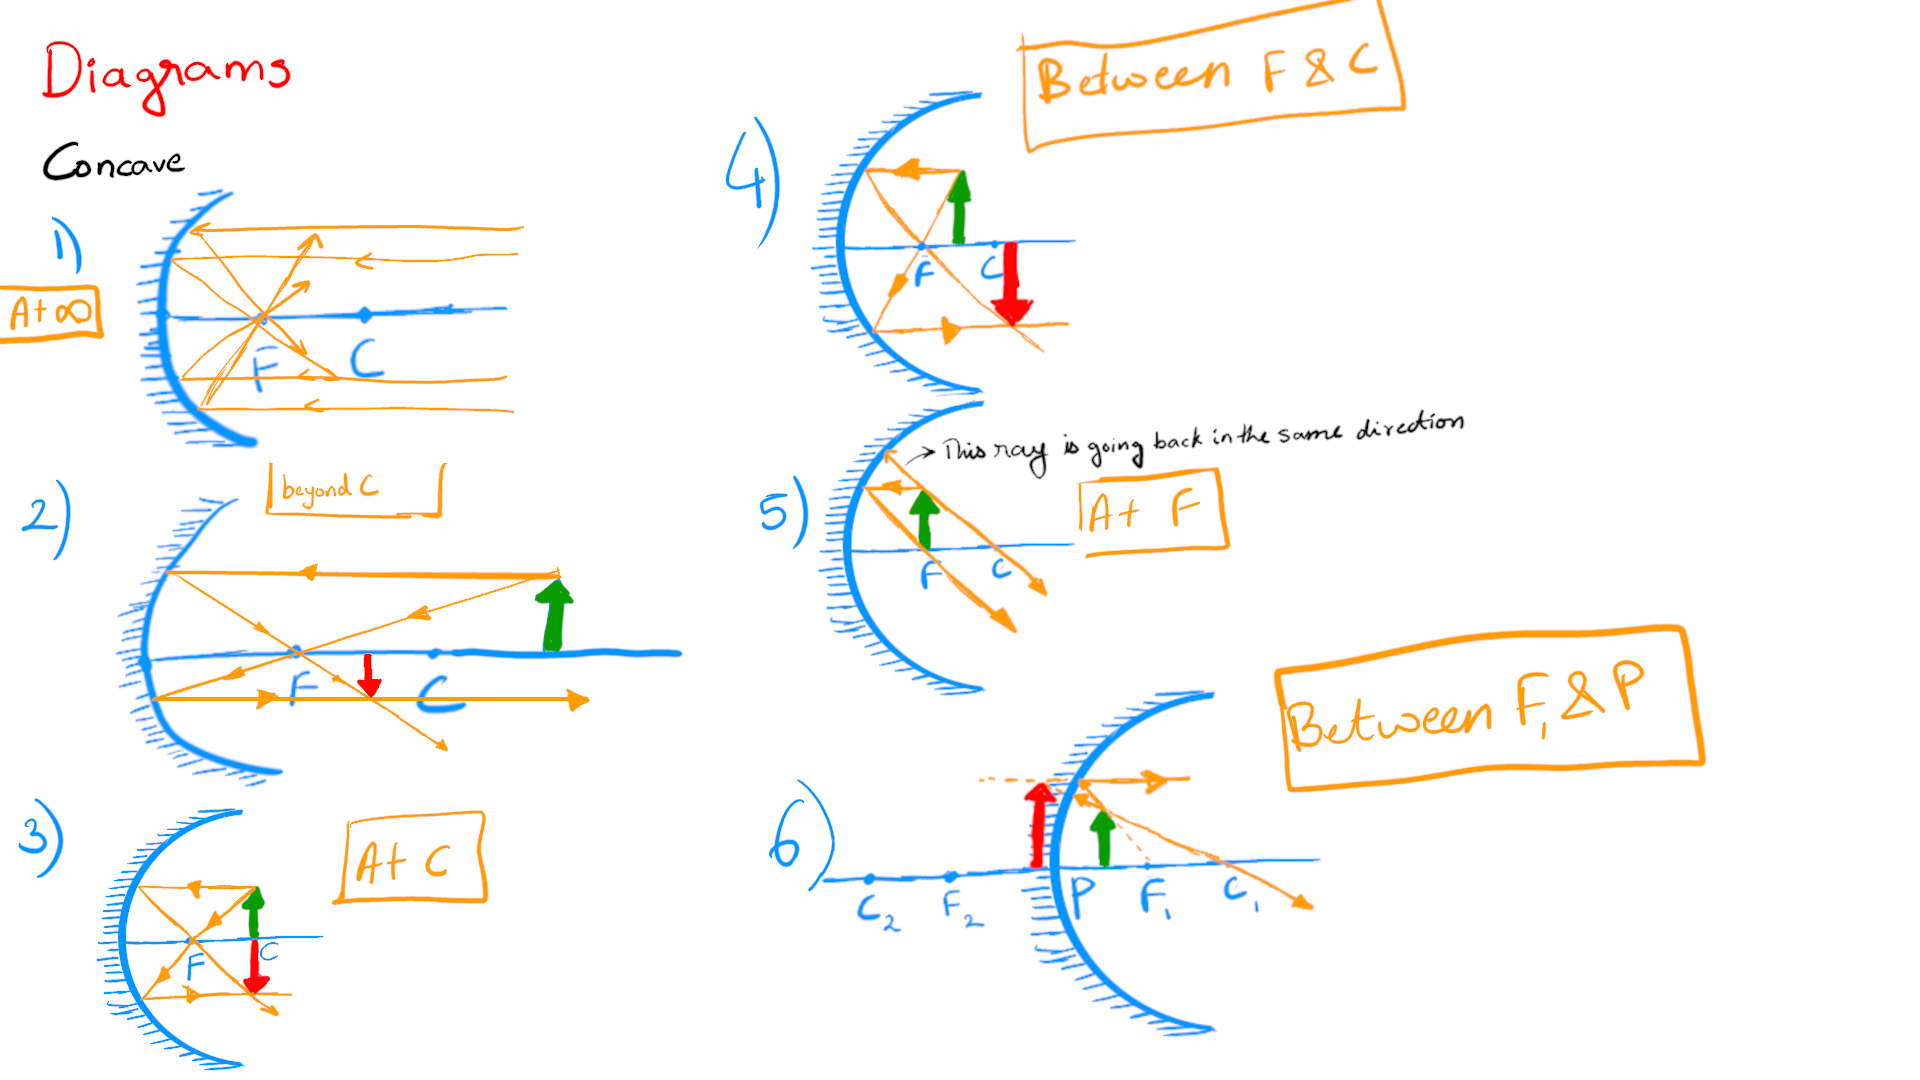 Diagrams
Concave
1)
At ∞
F
C
2)
beyond C
F
C
3)
At C
F
C
4)
Between F & C
F
C
5)
→ This ray is going back in the same direction
At F
F
C
6)
Between F₁ & P
C₂
F₂
P
F₁
C₁